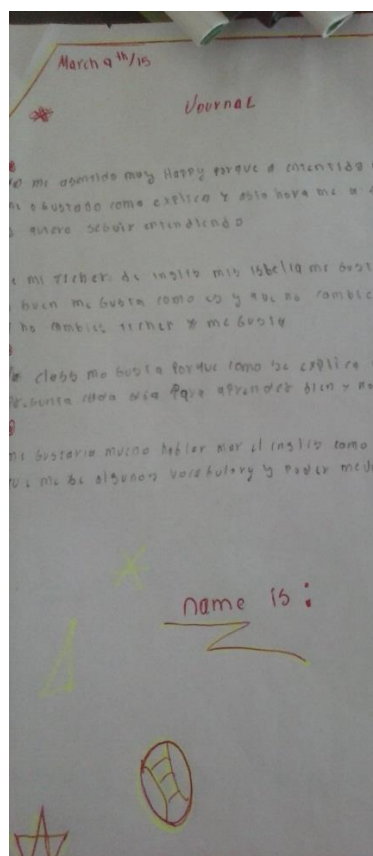 March 9th/15
Journal
me asentido muy Happy porque a entendido
gustado como explica y asta hora me a
quiero seguir entendiendo
mi ticher de inglis mis isbelia me Gust
buen me Gusta como es y que no cambie
no cambies ticher me Gusta
class me Gusta Porque como se explica
cada dia Para aprender bien y
me Gustaria mucho hablar mas el inglis como
me se algunos vocabulary y Poder
name is :